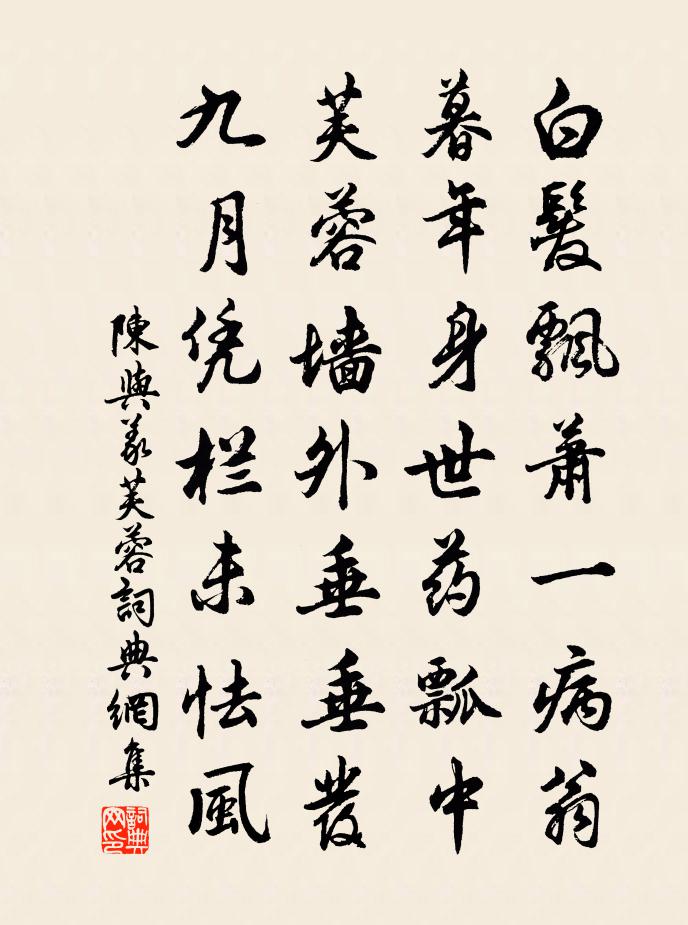 白髮飄蕭一病翁
暮年身世药瓢中
芙蓉墙外垂垂發
九月凭栏未怯風
陳與義芙蓉詞典網集
詞典网印